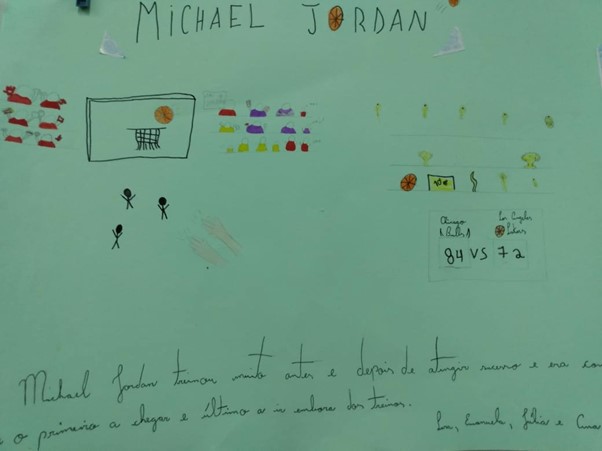 MICHAEL JORDAN
Chicago Bulls
Los Angeles Lakers
84 VS 72
Michael Jordan treinou muito antes e depois de atingir sucesso e era con
o primeiro a chegar e último a ir embora dos treinos.
Emanuela, Júlia e